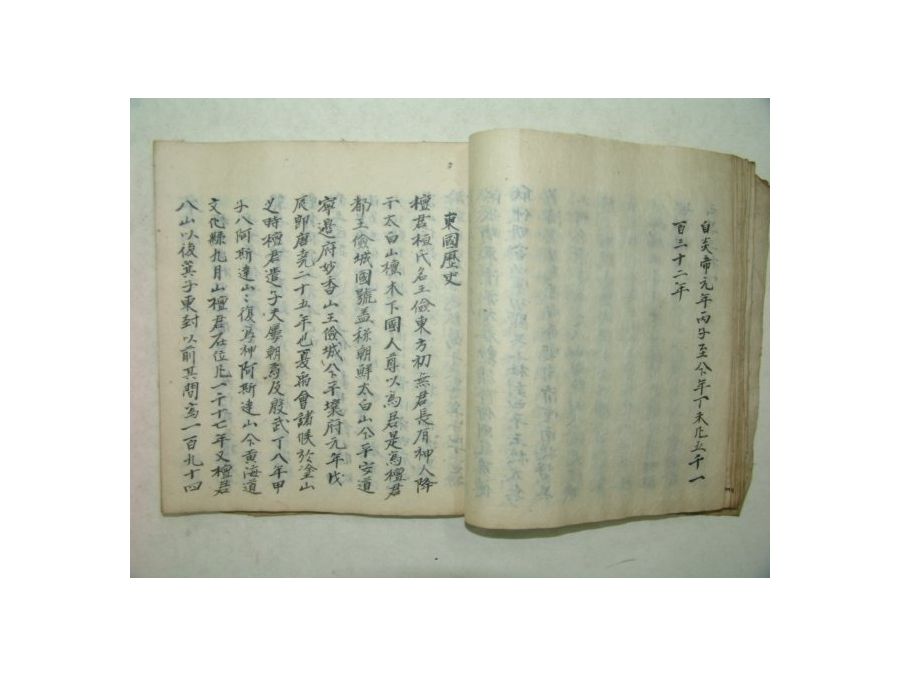 自炎帝元年丙子至今年丁未凡五千一
百三十二年
東國歷史
檀君桓氏名王儉東方初無君長有神人降
于太白山檀木下國人尊以爲君是爲檀君
都王儉城國號盖稱朝鮮太白山今平安道
寧邊府妙香山王儉城今平壤府元年戊
辰即唐堯二十五年也夏禹會諸候於塗山
之時檀君遣子夫婁朝焉及殷武丁八年甲
子入阿斯達山復爲神阿斯達山今黃海道
文化縣九月山檀君在位凡一千十七年又檀君
入山以後箕子東封以前其間爲一百九十四